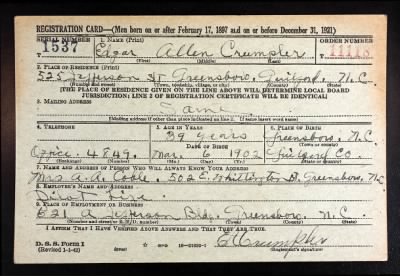 REGISTRATION CARD—(Men born on or after February 17, 1897 and on or before December 31, 1921)
SERIAL NUMBER 1. NAME (Print) ORDER NUMBER
1537 Edgar Allen Crumpler 11118
(First) (Middle) (Last)
2. PLACE OF RESIDENCE (Print)
525 Jefferson St Greensboro, Guilford, N.C.
(Number and street) (Town, township, village, or city) (County) (State)
[THE PLACE OF RESIDENCE GIVEN ON THE LINE ABOVE WILL DETERMINE LOCAL BOARD
JURISDICTION; LINE 2 OF REGISTRATION CERTIFICATE WILL BE IDENTICAL]
3. MAILING ADDRESS
Same
[Mailing address if other than place indicated on line 2. If same insert word same]
4. TELEPHONE 5. AGE IN YEARS 6. PLACE OF BIRTH
39 years Greensboro, N.C.
DATE OF BIRTH
Office 4849 Mar. 6 1902 Guilford Co.
(Exchange) (Number) (Mo.) (Day) (Yr.) (State or country)
7. NAME AND ADDRESS OF PERSON WHO WILL ALWAYS KNOW YOUR ADDRESS
Mrs. A. A. Coble. 502 E. Whittington St. Greensboro, N.C.
8. EMPLOYER'S NAME AND ADDRESS
9. PLACE OF EMPLOYMENT OR BUSINESS
621 Jefferson Bldg. Greensboro, N.C.
(Number and street or R. F. D. number) (Town) (County) (State)
I AFFIRM THAT I HAVE VERIFIED ABOVE ANSWERS AND THAT THEY ARE TRUE.
D. S. S. Form 1
(Revised 1-1-42) (over)
E A Crumpler
(Registrant's signature)